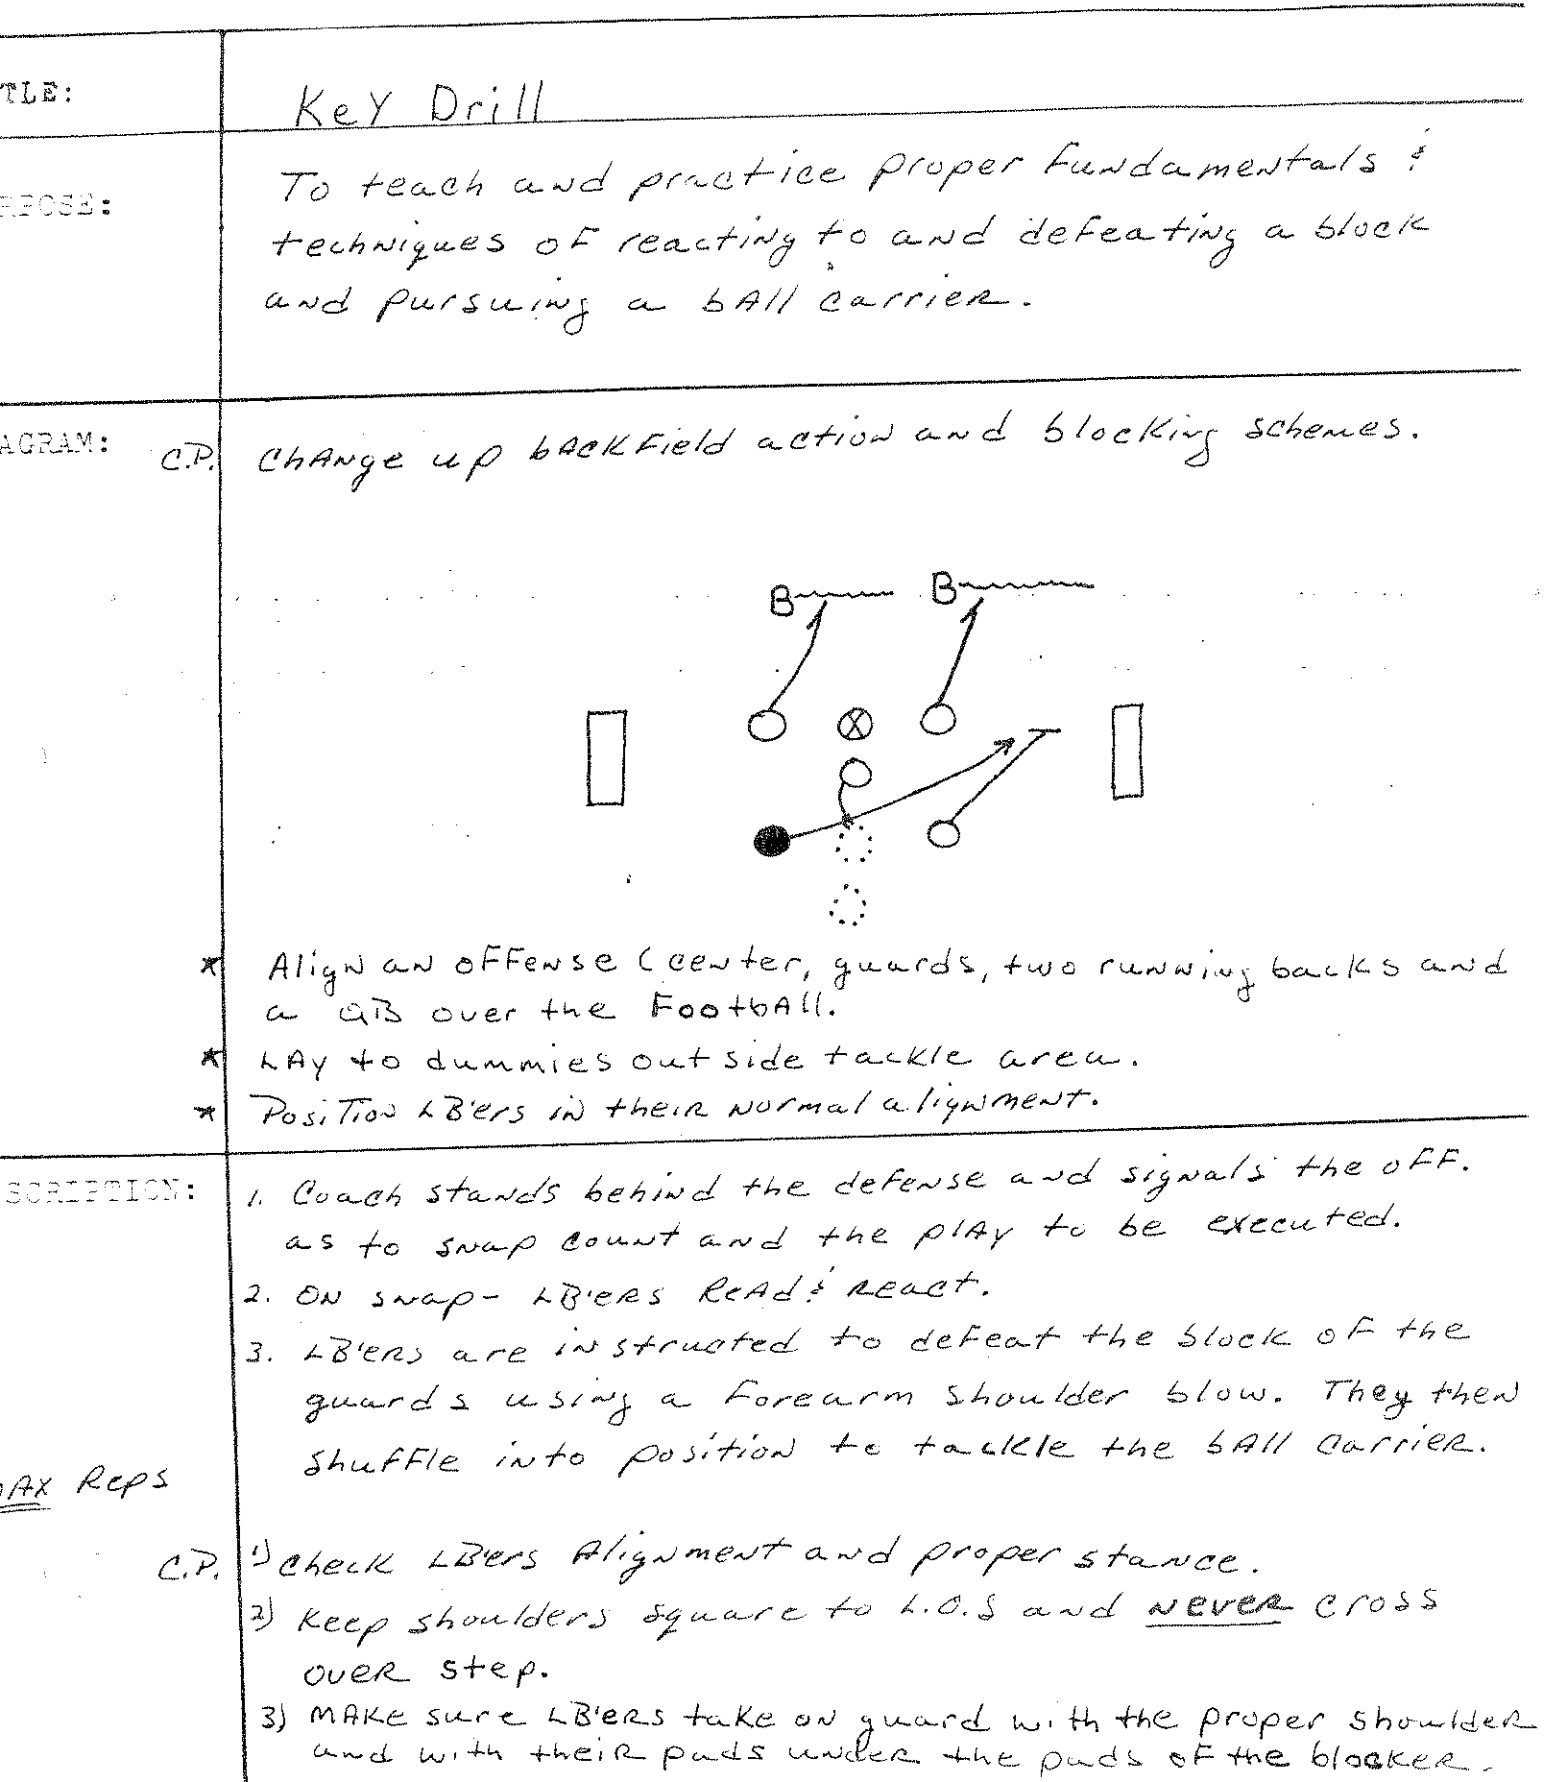 TLE:
Key Drill
RPOSE:
To teach and practice proper fundamentals &
techniques of reacting to and defeating a block
and pursuing a ball carrier.
AGRAM:
C.P. Change up backfield action and blocking schemes.
B B
X
* Align an offense (center, guards, two running backs and
a QB over the football.
* Lay to dummies outside tackle area.
* Position LB'ers in their normal alignment.
SCRIPTION:
1. Coach stands behind the defense and signals the off.
as to snap count and the play to be executed.
2. On snap - LB'ers Read & React.
3. LB'ers are instructed to defeat the block of the
guards using a forearm shoulder blow. They then
shuffle into position to tackle the ball carrier.
MAX Reps
C.P. 1) Check LB'ers Alignment and proper stance.
2) Keep shoulders square to L.O.S and never cross
over step.
3) Make sure LB'ers take on guard with the proper shoulder
and with their pads under the pads of the blocker.